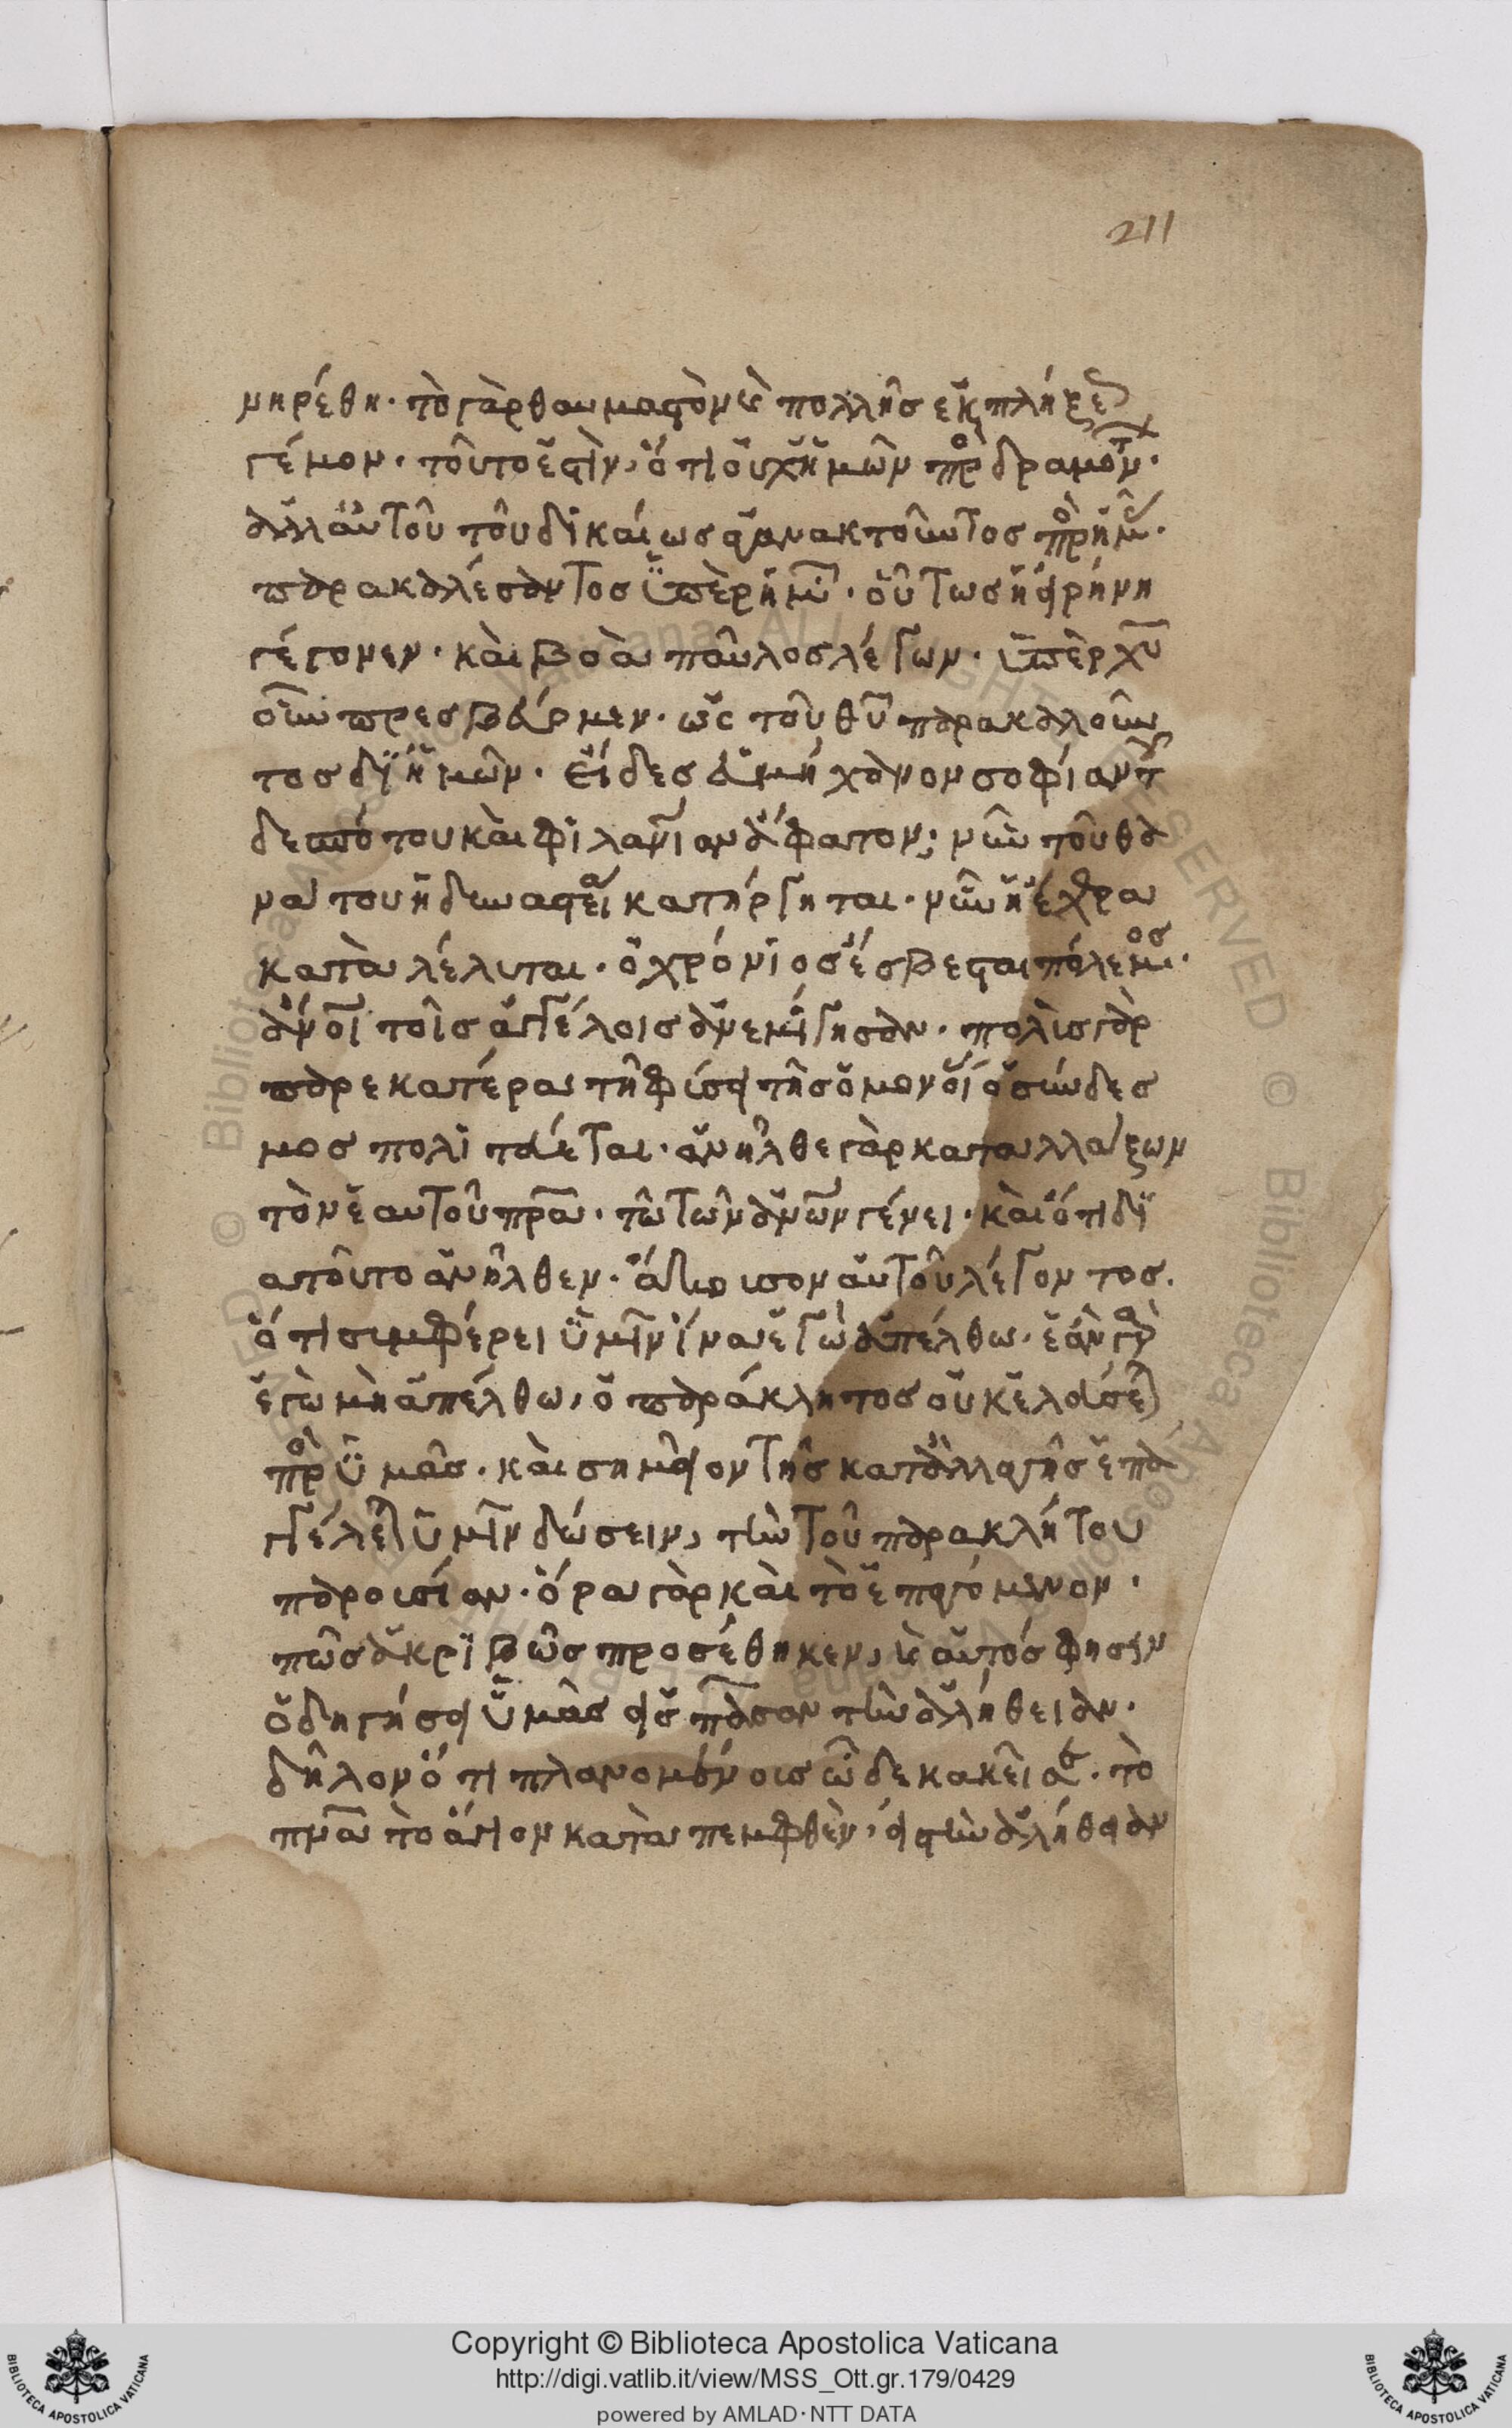 211
νηρέθη· τὸ γὰρ θαυμαστὸν καὶ πολλῆς ἐκπλήξεως
γέμον· τοῦτο ἐστὶν, ὅτι οὐχ ἡμῶν προδραμόντων·
ἀλλ' αὐτοῦ τοῦ δικαίως ἀγανακτοῦντος πρὸς ἡμᾶς·
παρακαλέσαντος ὑπὲρ ἡμῶν· οὕτως ἡ εἰρήνη
γέγονεν· καὶ βοᾶ παῦλος λέγων· ὑπὲρ χυ
οὖν πρεσβεύομεν· ὡς τοῦ θυ παρακαλοῦν
τος δι' ἡμῶν· εἶδες ἀμήχανον σοφίαν τοῦ
δεσπότου καὶ φιλανίαν ἄφατον; νῦν τοῦ θα
νάτου ἡ δυναστεία κατήργηται· νῦν ἡ ἔχθρα
καταλέλυται· ὁ χρόνιος ἔσβεσται πόλεμος·
ἄνοι τοῖς ἀγγέλοις ἀνεμίγησαν· πολὺς γὰρ
παρ' ἑκατέρα τῆ φύσει τῆς ὁμονοίας ὁ σύνδεσ
μος πολιτεύεται· ἀνῆλθε γὰρ καταλλάξων
τὸν ἑαυτοῦ πρα· τῶ τῶν ἀνων γένει· καὶ ὅτι δι
α τοῦτο ἀνῆλθεν· ἄκουσον αὐτοῦ λέγοντος·
ὅτι συμφέρει ὑμῖν ἵνα ἐγὼ ἀπέλθω· ἐὰν γὰρ
ἐγὼ μὴ ἀπέλθω, ὁ παράκλητος οὐκ ἐλεύσεται
πρὸς ὑμᾶς· καὶ σημεῖον τῆς καταλλαγῆς ἐπα
γγέλλεται ὑμῖν δώσειν, τὴν τοῦ παρακλήτου
παρουσίαν· ὅρα γὰρ καὶ τὸ ἐπαγόμενον·
πῶς ἀκριβῶς προσέθηκεν, καὶ αὐτός φησιν
ὁδηγήσει ὑμᾶς εἰς πᾶσαν τὴν ἀλήθειαν·
δῆλον ὅτι πλανομένοις ὧδε κακεῖσε· τὸ
πνα τὸ ἅγιον καταπεμφθὲν, εἰς τὴν ἀλήθειαν
Copyright © Biblioteca Apostolica Vaticana
http://digi.vatlib.it/view/MSS_Ott.gr.179/0429
powered by AMLAD·NTT DATA